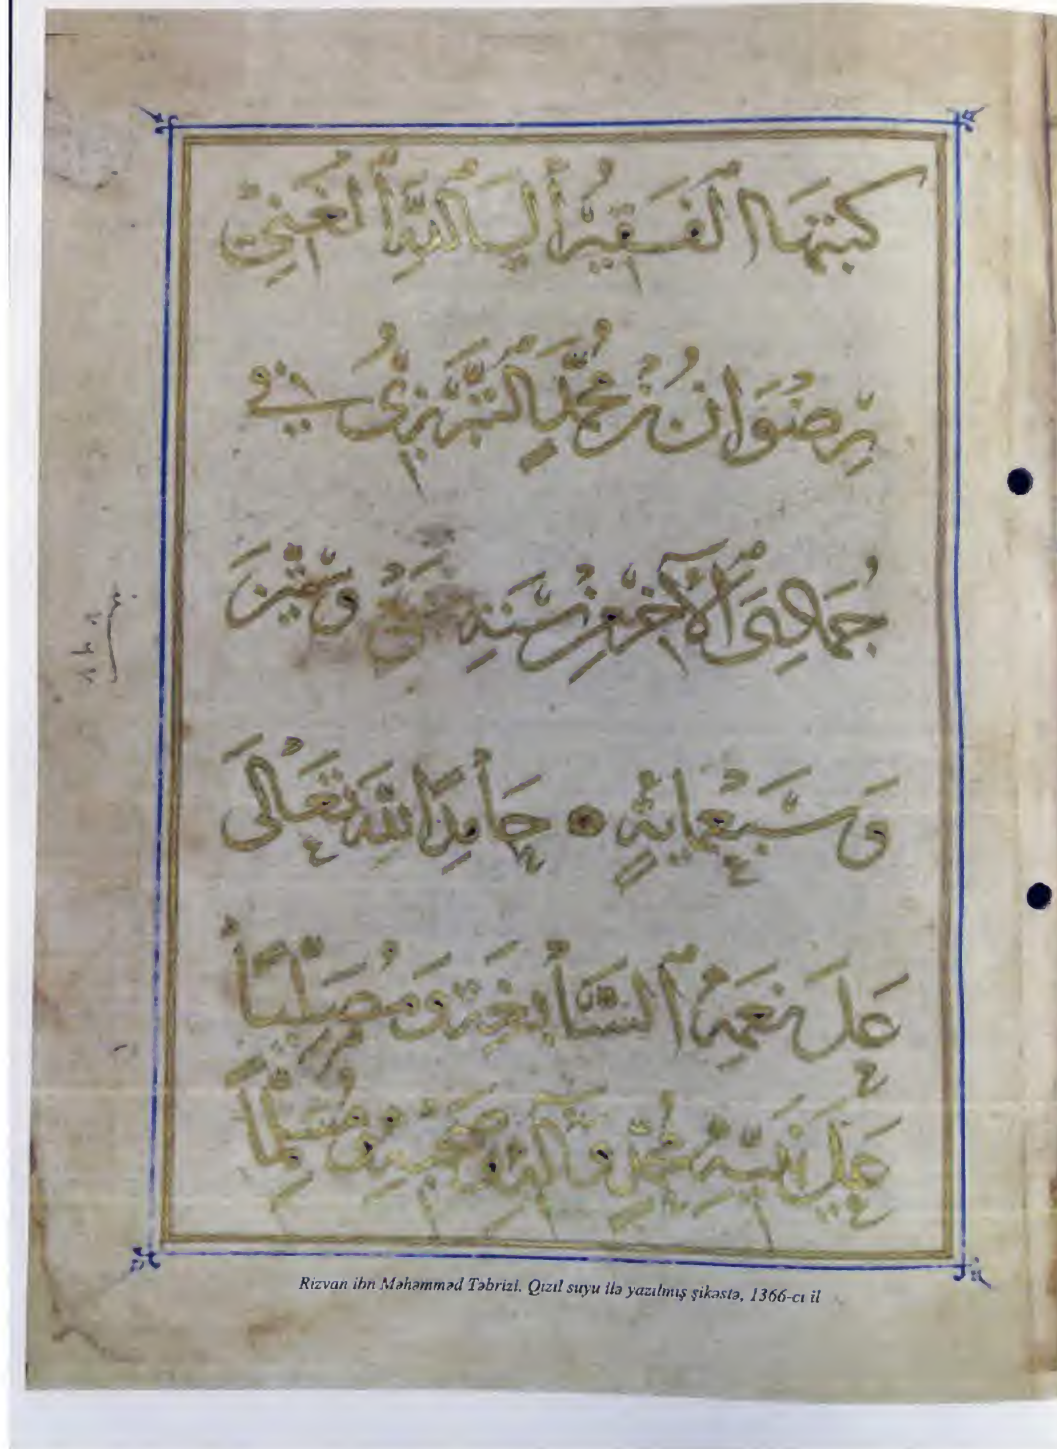 كَتَبَهَا الْفَقِيرُ إِلَى اللَّهِ الْغَنِيِّ
رِضْوَان بْنُ مُحَمَّدٍ التَّبْرِيزِيُّ فِي
جُمَادَى الْآخِرِ مِنْ سَنَةِ وَسِتِّينَ
وَسَبْعِمَايَةٍ حَامِدًا لِلَّهِ تَعَالَى
عَلَى نِعَمِهِ السَّابِغَةِ وَمُصَلِّيًا
عَلَى نَبِيِّهِ مُحَمَّدٍ وَآلِهِ وَصَحْبِهِ وَمُسَلِّمًا
سنة
Rizvan ibn Məhəmməd Təbrizi. Qızıl suyu ilə yazılmış şikəstə, 1366-cı il